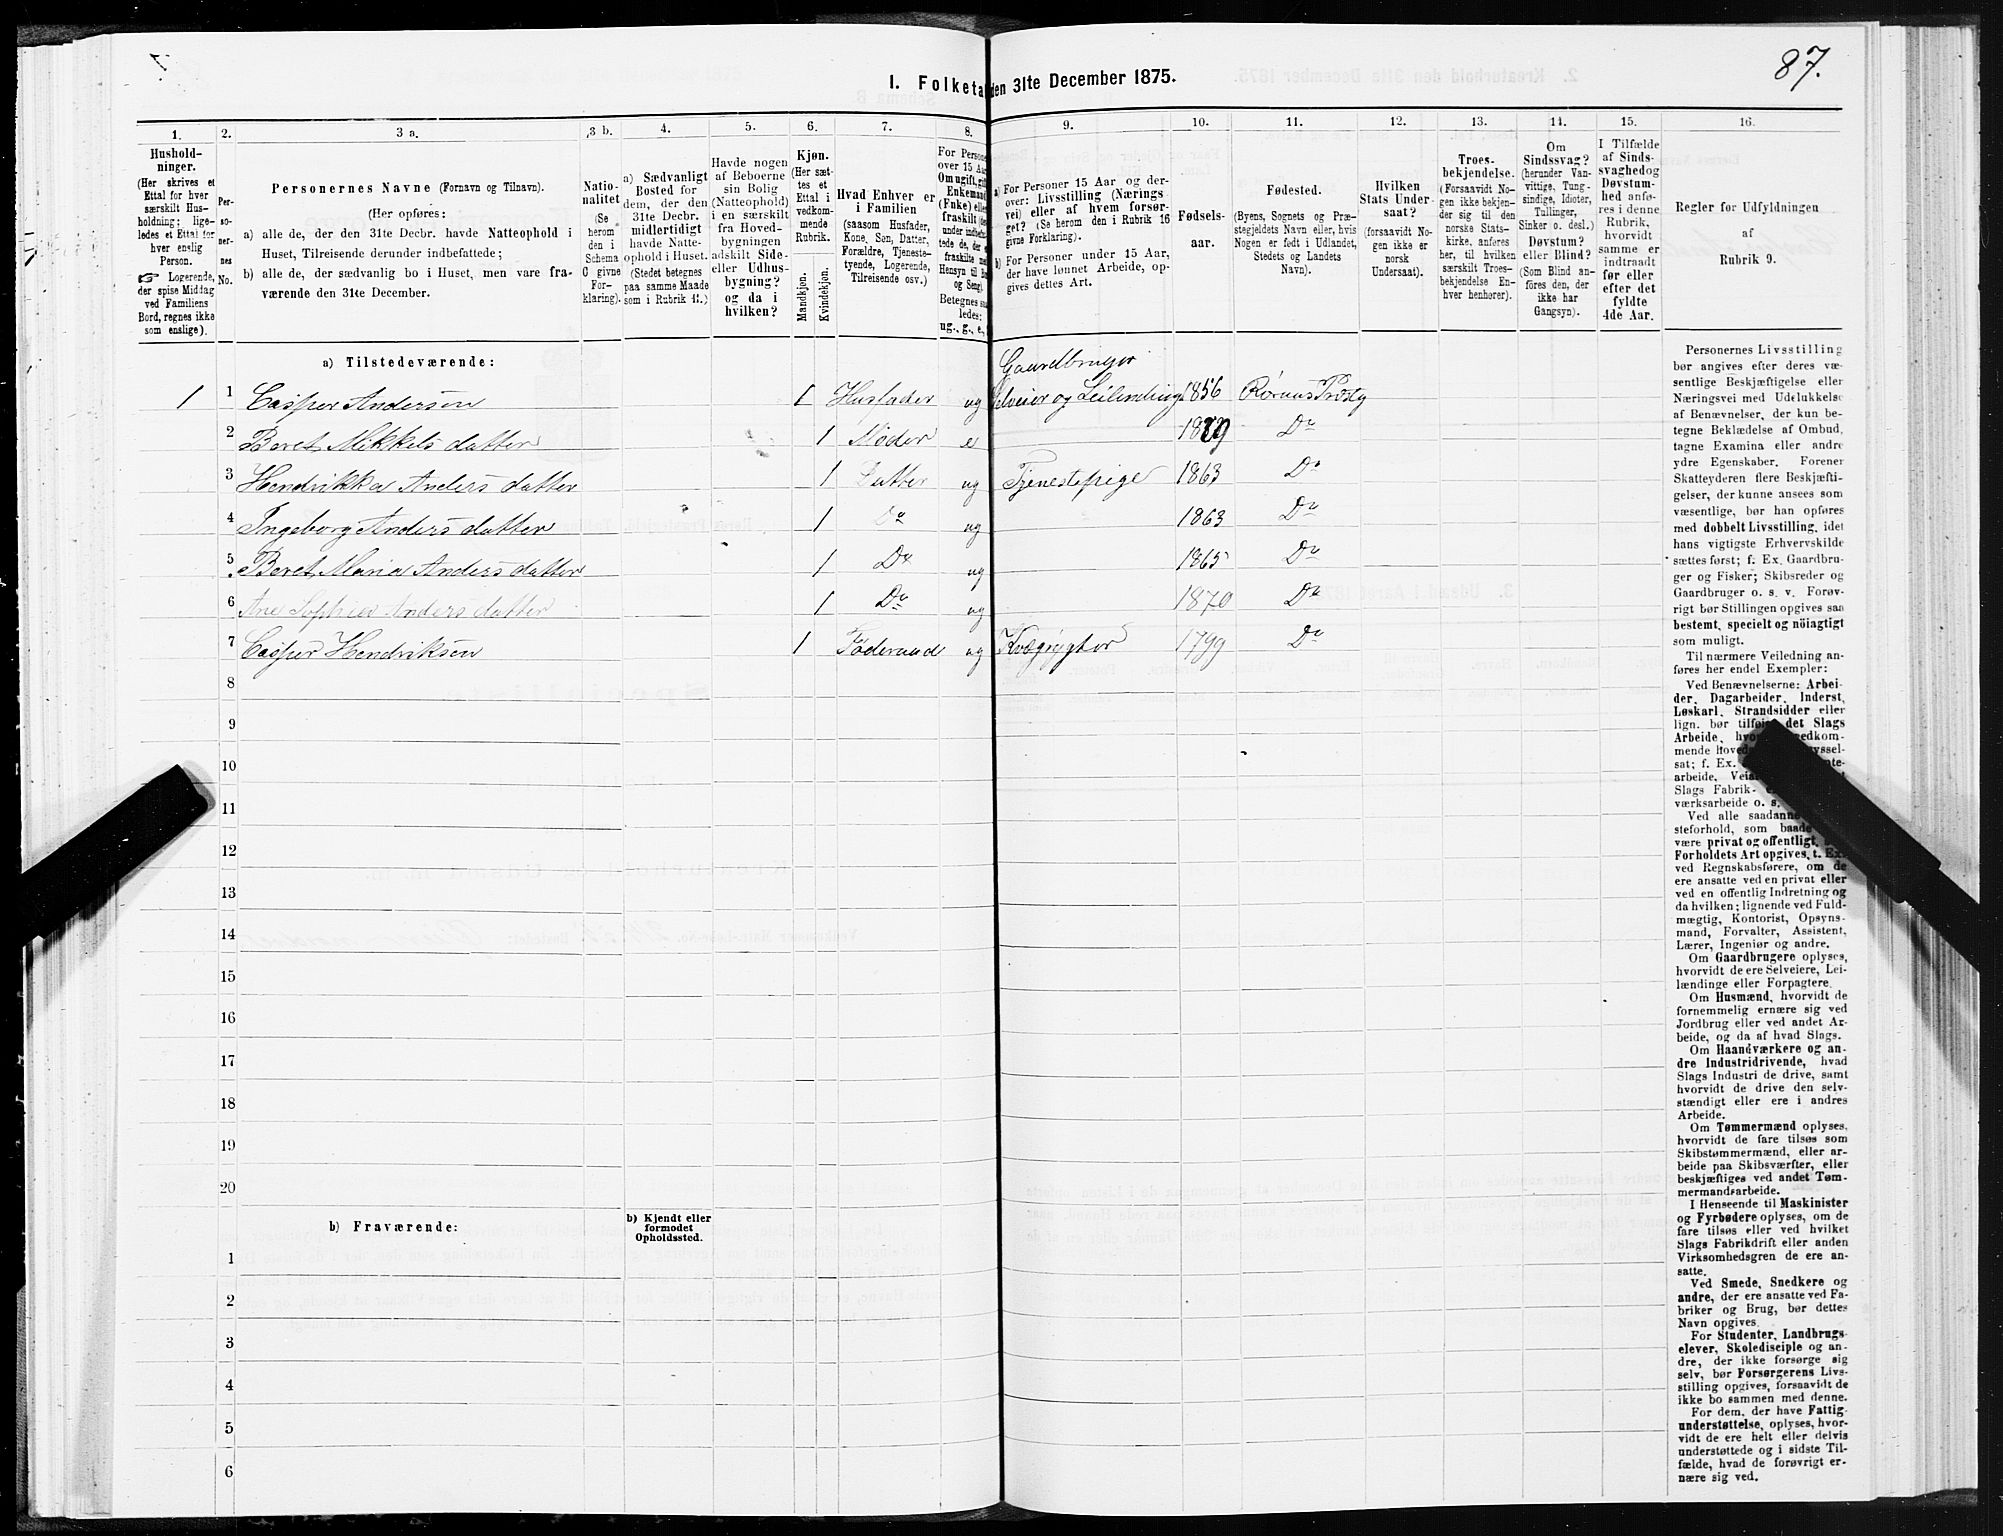 87.
I. Folketal den 31te December 1875.
1. 2. 3 a. 3 b. 4. 5. 6. 7. 8. 9. 10. 11. 12. 13. 14. 15. 16.
Hushold-
ninger.
(Her skrives et
Ettal for hver
særskilt Hus-
holdning; lige-
ledes et Ettal for
hver enslig
Person.
☞ Logerende,
der spise Middag
ved Familiens
Bord, regnes ikke
som enslige).
Per-
so-
ner-
nes
No.
Personernes Navne (Fornavn og Tilnavn).
(Her opføres:
a) alle de, der den 31te Decbr. havde Natteophold i
Huset, Tilreisende derunder indbefattede;
b) alle de, der sædvanlig bo i Huset, men vare fra-
værende den 31te December.
Natio-
nalitet
(Se
herom
den i
Schema
C givne
For-
klaring).
a) Sædvanligt
Bosted for
dem, der den
31te Decbr.
midlertidigt
havde Natte-
ophold i Huset.
(Stedet betegnes
paa samme Maade
som i Rubrik 11.)
Havde nogen
af Beboerne
sin Bolig
(Natteophold)
i en særskilt
fra Hoved-
bygningen
adskilt Side-
eller Udhus-
bygning?
og da i
hvilken?
Kjøn.
(Her sæt-
tes et
Ettal i
vedkom-
mende
Rubrik.
Mandkjøn.
Kvindekjøn.
Hvad Enhver er
i Familien
(saasom Husfader,
Kone, Søn, Datter,
Forældre, Tjeneste-
tyende, Logerende,
Tilreisende osv.)
For Persone
over 15 Aar
Om ugift, gift
Enkemand
(Enke) elle
fraskilt
Betegnes saa-
ledes:
ug., g., e.,
a) For Personer 15 Aar og der-
over: Livsstilling (Nærings
vei) eller af hvem forsør-
get? (Se herom den i Rubrik 16
givne Forklaring).
b) For Personer under 15 Aar,
der have lønnet Arbeide, op-
gives dettes Art.
Fødsels-
aar.
Fødested.
(Byens, Sognets og Præ-
stegjeldets Navn eller, hvis
Nogen er født i Udlandet,
Stedets og Landets
Navn).
Hvilken
Stats Under-
saat?
(forsaavidt No-
gen ikke er
norsk
Undersaat).
Troes-
bekjendelse.
(Forsaavidt No-
gen ikke bekjen-
der sig til den
norske Stats-
kirke, anføres
her, til hvilken
særskilt Troes-
bekjendelse En-
hver henhører).
Om
Sindssvag?
(herunder Van-
vittige, Tung-
sindige, Idioter,
Tullinger,
Sinker o. desl.)
Døvstum?
eller Blind?
(Som Blind an-
føres den, der
ikke har
Gangsyn).
I Tilfælde
af Sinds-
svaghed og
Døvstum-
hed anfø-
res i denne
Rubrik,
hvorvidt
samme er
indtraadt
før eller
efter det
fyldte
4de Aar.
Regler for Udfyldningen
af
Rubrik 9.
a) Tilstedeværende:
Gaardbruger
1 1 Casper Andersen 1 Husfader ug Selveier og Leilending 1856 Røraas Præstg
2 Beret Mikkels datter 1 Moder e Do
3 Hendrikka Anders datter 1 Datter ug Tjenestepige 1863 Do
4 Ingeborg Anders datter 1 Do ug 1863 Do
5 Beret Maria Anders datter 1 Do ug 1865 Do
6 Ane Sophia Anders datter 1 Do ug 1870 Do
7 Casper Hendriksen 1 Føderaad ug Kvægrygter 1799 Do
8
9
10
11
12
13
14
15
16
17
18
19
20
b) Fraværende:
b) Kjendt eller
formodet
Opholdssted.
1
2
3
4
5
6
Personernes Livsstilling
bør angives efter deres væ-
sentlige Beskjæftigelse eller
Næringsvei med Udelukkelse
af Benævnelser, der kun be-
tegne Beklædelse af Ombud,
tagne Examina eller andre
ydre Egenskaber. Forener
Skatteyderen flere Beskjæfti-
gelser, der kunne ansees som
væsentlige, bør han opføres
med dobbelt Livsstilling, idet
hans vigtigste Erhvervskilde
sættes først; f. Ex. Gaardbru-
ger og Fisker; Skibsreder og
Gaardbruger o. s. v. Forøv-
rigt bør Stillingen opgives saa
bestemt, specielt og nöiagtigt
som muligt.
Til nærmere Veiledning an-
føres her endel Exempler:
Ved Benævnelserne: Arbei-
der, Dagarbeider, Inderst,
Løskarl, Strandsidder eller
lign. bør tilføies det Slags
Arbeide, hvormed
mende Hoved
sat; f. Ex.
arbeide, Vei
Slags Fabrik-
værksarbeide o. s.
Ved alle saadanne
steforhold, som baade
være privat og offentligt,
Forholdets Art opgives, t. Ex.
ved Regnskabsførere, om de
ere ansatte ved en privat eller
ved en offentlig Indretning og
da hvilken; lignende ved Fuld-
mægtig, Kontorist, Opsyns-
mand, Forvalter, Assistent,
Lærer, Ingeniør og andre.
Om Gaardbrugere oplyses,
hvorvidt de ere Selveiere, Lei-
lændinge eller Forpagtere.
Om Husmænd, hvorvidt de
fornemmelig ernære sig ved
Jordbrug eller ved andet Ar-
beide, og da af hvad Slags.
Om Haandværkere og an-
dre Industridrivende, hvad
Slags Industri de drive, samt
hvorvidt de drive den selv-
stændigt eller ere i andres
Arbeide.
Om Tømmermænd oplyses,
hvorvidt de fare tilsøs som
Skibstømmermænd, eller ar-
beide paa Skibsværfter, eller
beskjæftiges ved andet Tøm-
mermandsarbeide.
I Henseende til Maskinister
og Fyrbødere oplyses, om de
fare tilsøs eller ved hvilket
Slags Fabrikdrift eller anden
Virksomhedsgren de ere an-
satte.
Ved Smede, Snedkere og
andre, der ere ansatte ved Fa-
briker og Brug, bør dettes
Navn opgives.
For Studenter, Landbrugs-
elever, Skoledisciple og an-
dre, der ikke forsørge sig
selv, bør Forsørgerens Livs-
stilling opgives, forsaavidt de
ikke bo sammen med denne.
For dem, der have Fattig-
understøttelse, oplyses, hvor-
vidt de ere helt eller delvis
understøttede og i sidste Til-
fælde, hvad de forøvrigt er-
nære sig ved.